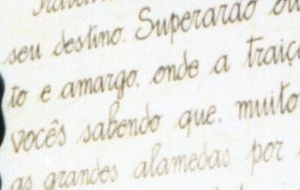 seu destino. Superarão ou
to e amargo, onde a traiç
vocês sabendo que, muito
as grandes alamedas por